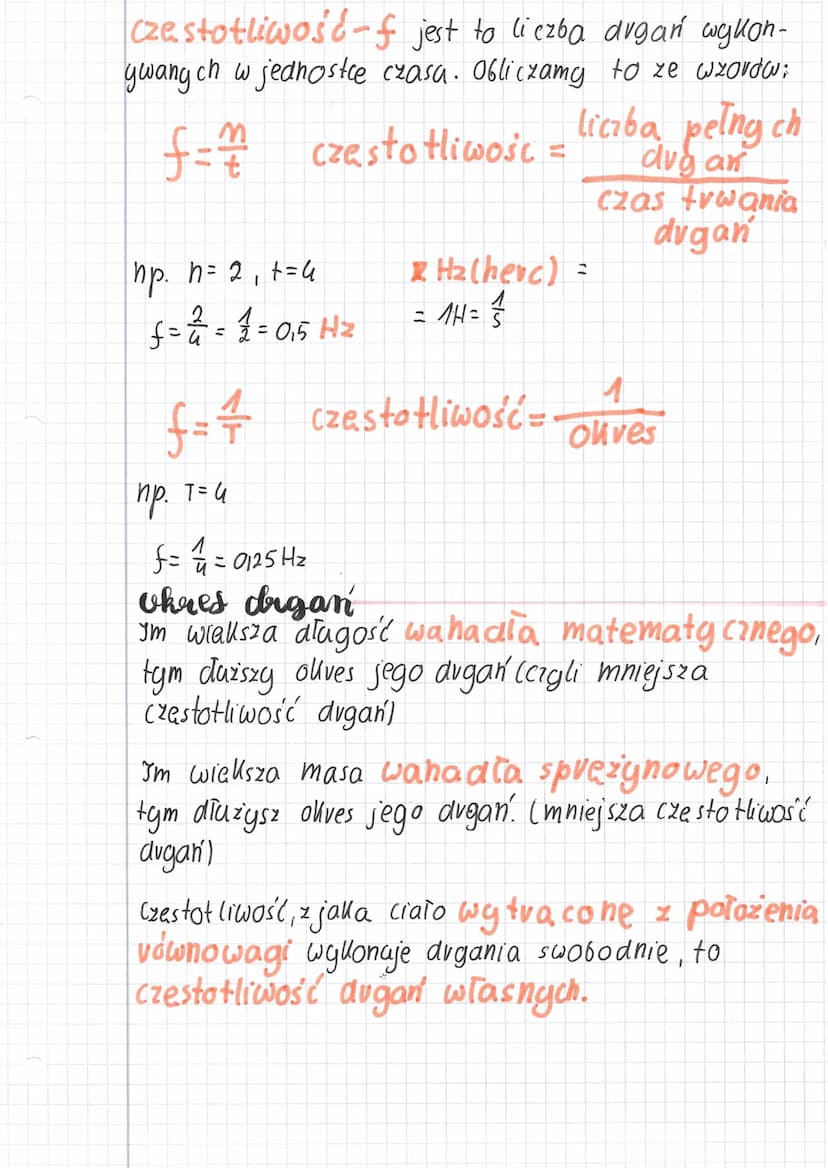 częstotliwość - f jest to liczba drgań wykon-
ywanych w jednostce czasu. Obliczamy to ze wzorów:
f = n/t częstotliwość = liczba pełnych drgań / czas trwania drgań
np. n = 2, t = 4 Hz (herc) =
f = 2/4 = 1/2 = 0,5 Hz = 1H = 1/s
f = 1/T częstotliwość = 1/okres
np. T = 4
f = 1/4 = 0,25 Hz
okres drgań
Im większa długość wahadła matematycznego,
tym dłuższy okres jego drgań (czyli mniejsza
częstotliwość drgań)
Im większa masa wahadła sprężynowego,
tym dłużysz okres jego drgań. (mniejsza częstotliwość
drgań)
Częstotliwość, z jaka ciało wytrącone z położenia
równowagi wykonuje drgania swobodnie, to
częstotliwość drgań własnych.